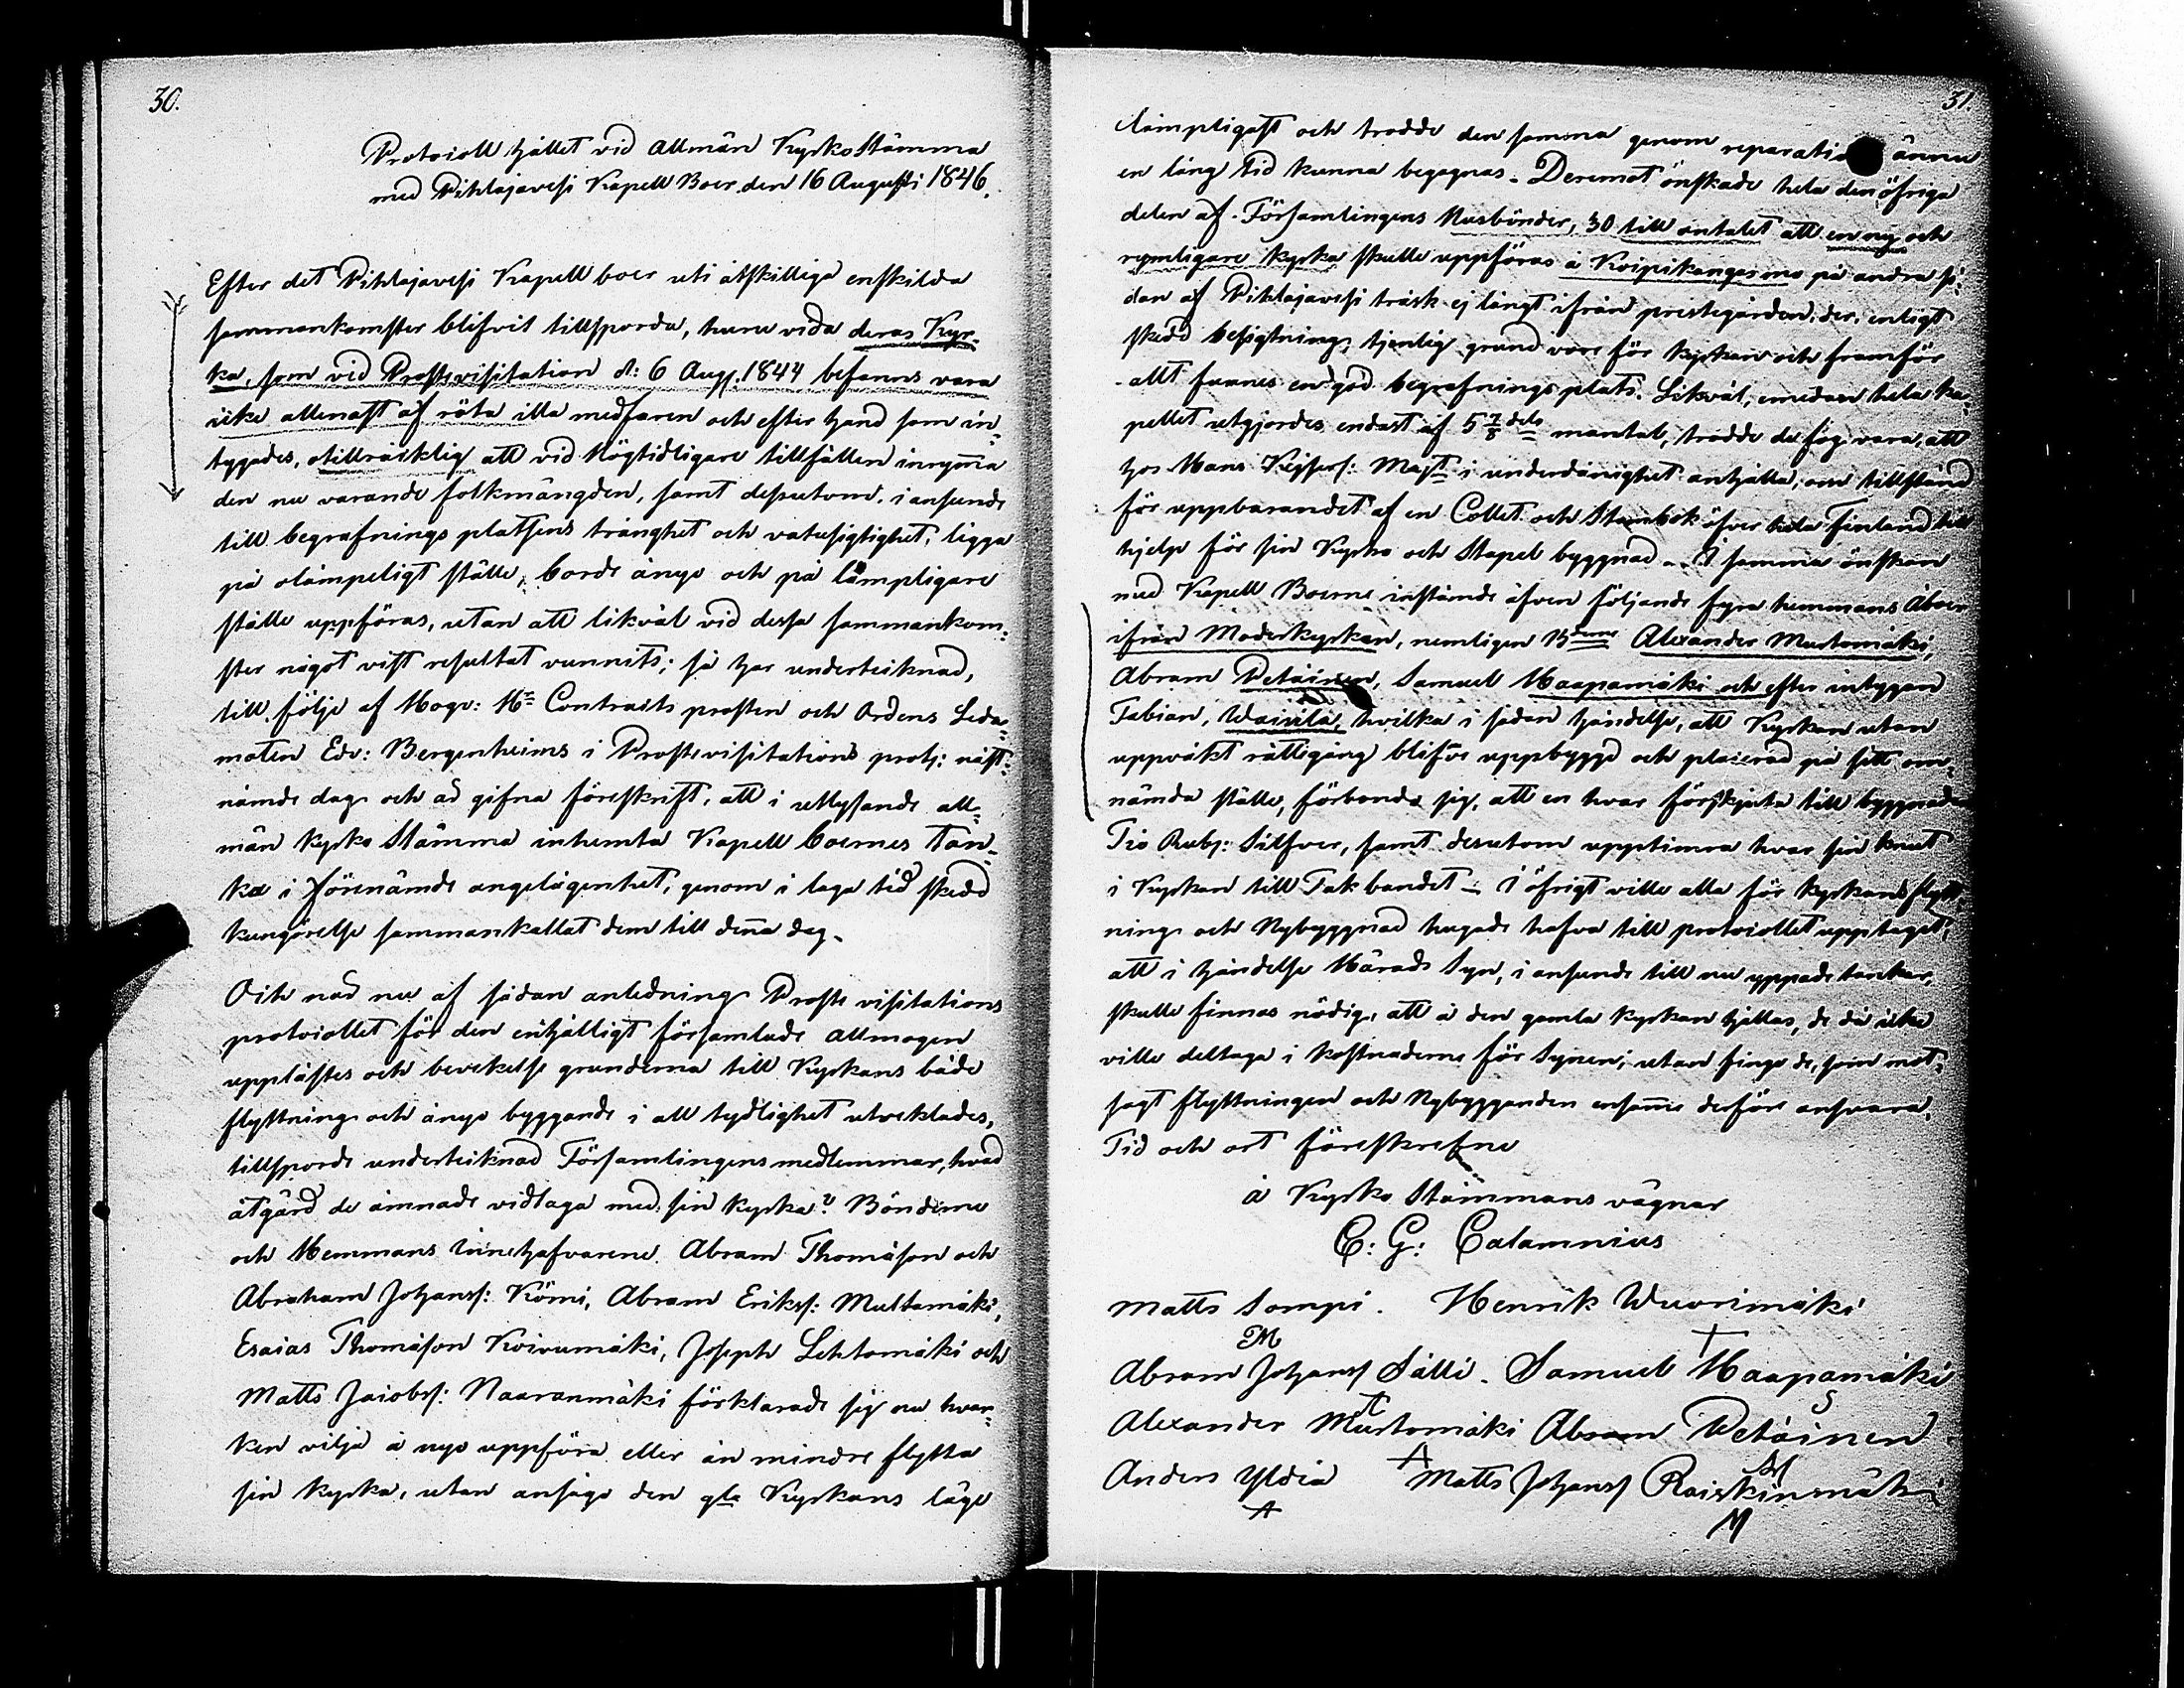 30.
Protocoll hållet vid Allmän KyrkoStämma
med Pihlajavesi Kapell Boer den 16 Augusti 1846.
Efter det Pihlajavesi Kapell boer uti åtskilliga enskilda
sammankomster blifvit tillsporda, huru vida deras Kyr-
ka, som vid Prostevisitation d: 6 Aug. 1844 befanns vara
icke allenast af röta illa medfaren och efter hand som in-
tygades, otillräcklig att vid Högtidligare tillfällen inrym̄a
den nu varande folkmängden, samt dessutom, i anseende
till begrafnings platsens trånghet och vatusigtighet, ligga
på olämpeligt ställe, borde ånyo och på lämpligare
ställe uppföras, utan att likväl vid dessa sammankom-
ster något vist resultat vunnits; så har undertecknad,
till följe af Högv: Hr Contracts prosten och Ordens Leda-
moten Edv: Bergenheims i Prostevisitations prot: näst-
nämde dag och ad gifna föreskrift, att i utlysande all-
män Kyrko Stämma inhemta Kapell boernes Tan-
ka i förenämde angelägenhet, genom i laga tid skedd
kungörelse sammankallat dem till den̄a dag.
Och när nu af sådan anledning Proste visitations
protocollet för den enhälligt församlade Allmogen
upplästes och bevekelse grunderna till Kyrkans både
flyttning och ånyo byggande i all tydlighet utvecklades,
tillsporde undertecknad Församlingens medlemmar, hvad
åtgärd de ämnade vidtaga med sin kyrka? Bönderne
och Hemmans innehafvarene Abram Thomasson och
Abraham Johanss: Kömi, Abram Erikss: Multamäki,
Esaias Thomasson Koivumäki, Joseph Lehtomäki och
Matts Jacobss: Naaranmäki förklarade sig nu hvar-
ken vilja å nyo uppföra eller än mindre flytta
sin kyrka, utan ansågo den gla Kyrkans läge
31.
lämpligast och trodde den samma genom reparation ännu
en lång tid kunna begagnas. Deremot önskade hela den öfriga
delen af Församlingens Husbönder, 30 till antalet att en ny och
rymligare kyrka skulle uppföras å Koipikangas mo på andra si-
dan af Pihlajavesi träsk ej långt ifrån prestegården, der, enligt
skedd besigtning, tjenlig grund vore för kyrkan och framför
allt funnes en god begrafnings plats. Likväl, emedan hela ka-
pellet utgjordes endast af 5 7/8 dels mantal, trodde de sig vara, att
hos Hans Kejsers: Majt i underdånighet anhålla, om tillstånd
för uppbärandet af en Collet och Stambok öfver hela Finland till
hjelp för sin Kyrko och Stapel byggnad. I samma önskan
med Kapell Boerne instämde äfven följande fyra hemmans Åboer
ifrån Moderkyrkan, nemligen Bderne Alexander Mustomäki,
Abram Petäinen, Samuel Haapamäki och efter intygan
Fabian, Waivila, hvilka i sådan händelse, att Kyrkan utan
uppväkt rättegång blifve uppbyggd och placerad på sitt om-
nämda ställe, förbundo sig, att en hvar förskjuta till byggnaden
Tio Rub: Silfver, samt desutom upptimra hvar sin knut
i Kyrkan till Tak bandet. I öfrigt ville alla för kyrkans flytt-
ning och Nybyggnad hugade hafva till protocollet upptaget,
att i händelse Härads Syn, i anseende till nu yppade tankar,
skulle finnas nödig, att å den gamla kyrkan hållas, de då icke
ville deltaga i kostnaderne för Synen; utan finge de, som mot-
sagt flyttningen och Nybyggnaden ensam̄e derföre ansvara.
Tid och ort föreskrefne
å Kyrko Stämmans vägnar
C: G: Calamnius
Matts Sompi. Henrik Wuorimäki
M
Abram Johanss Sälli. Samuel Haapamäki
S
Alexander Mustomäki Abram Petäinen.
A
Anders Yldiä Matts Johanss Raiskinmäki
A M